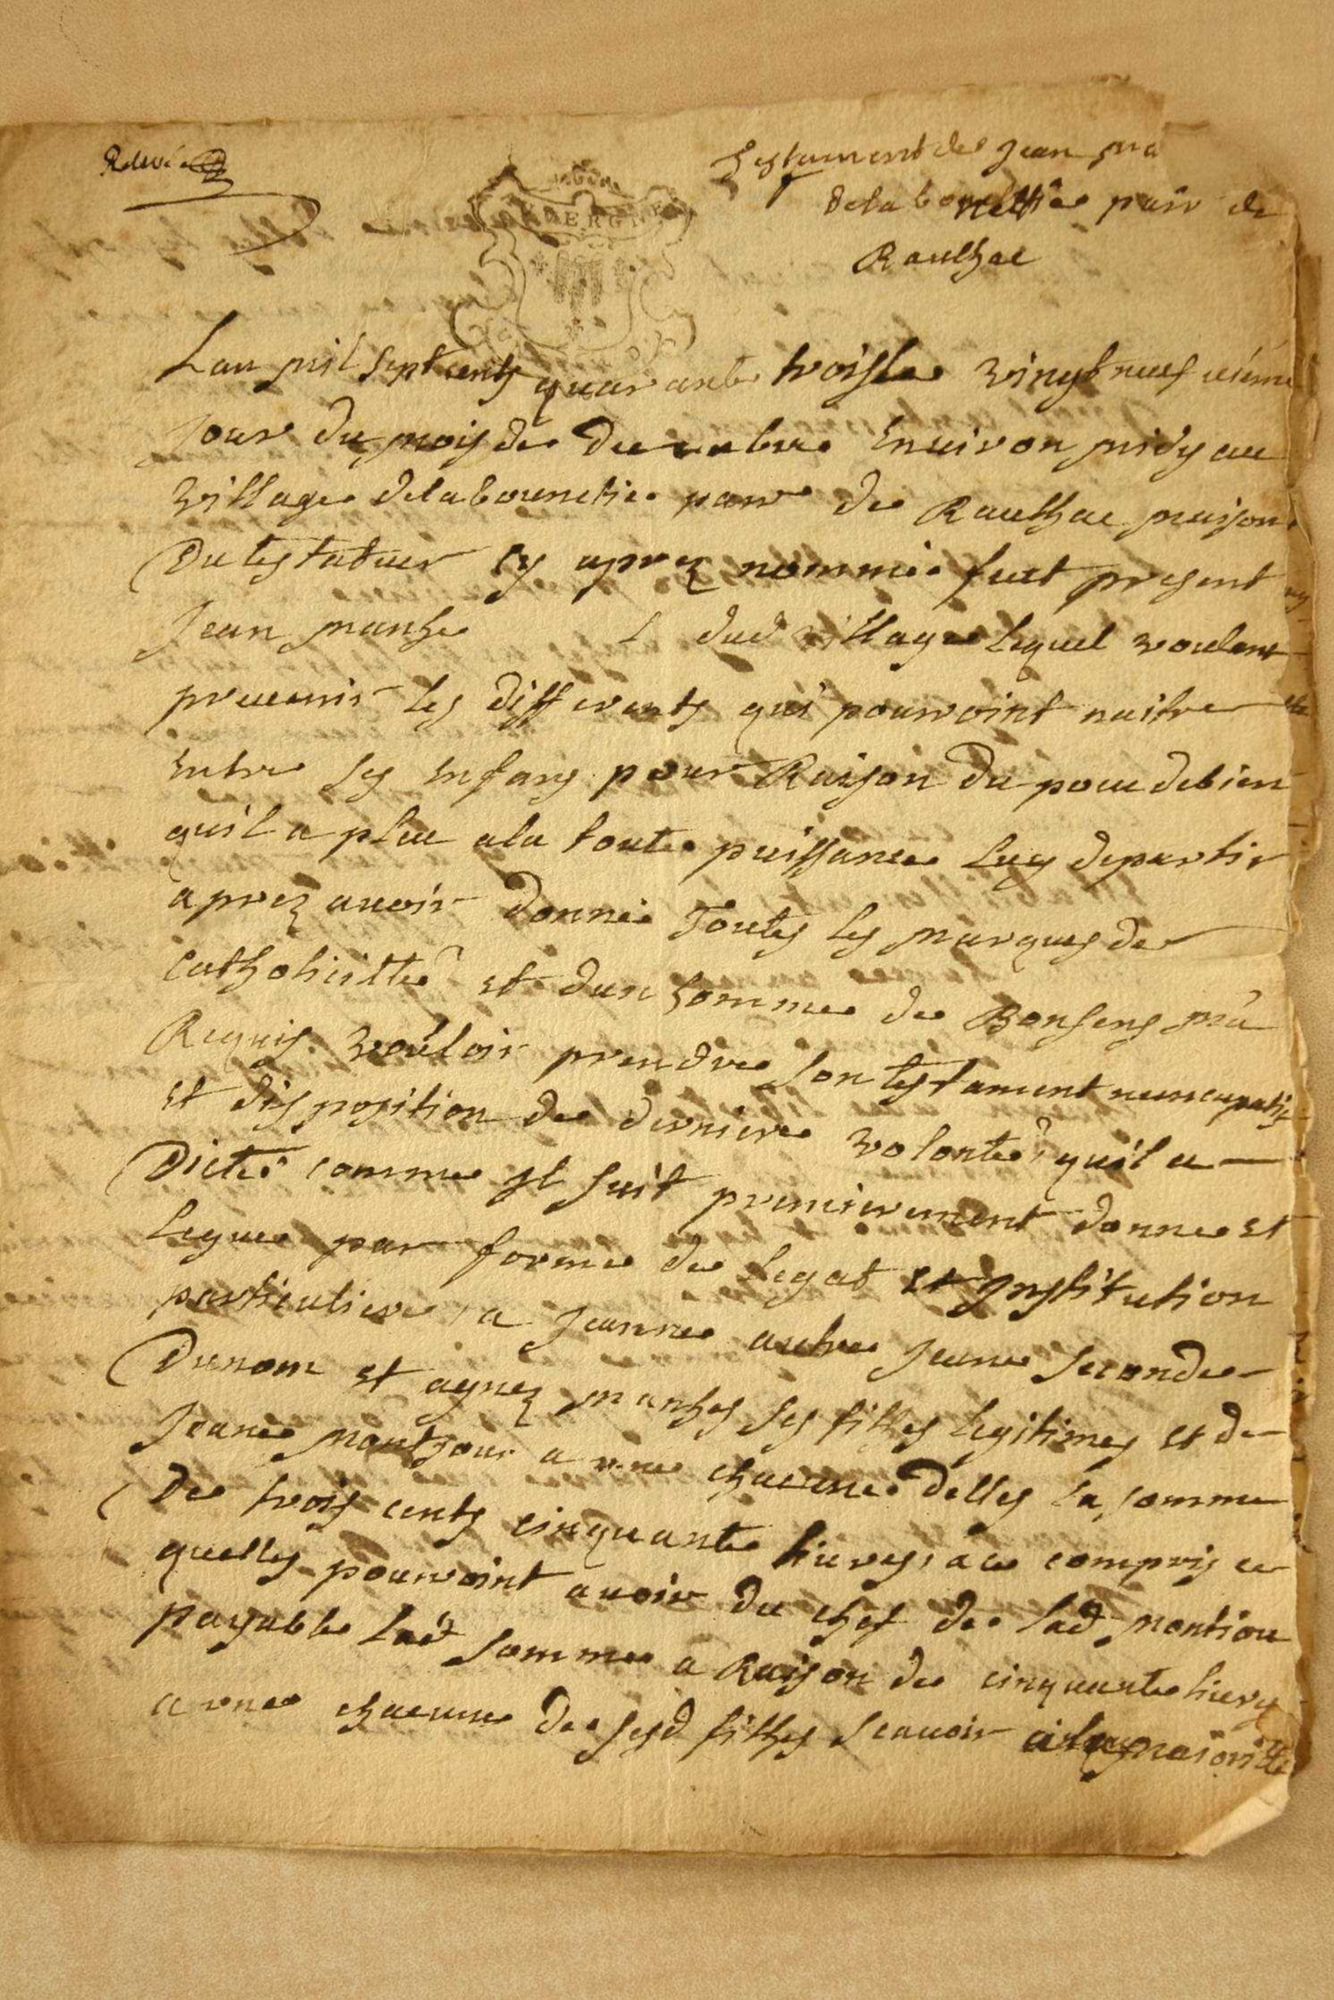 Testament de Jean
de la bounetie parr de
Raulhac
AUVERGNE
Lan mil sept cents quarante trois le vingt neuf vieme
Jour du mois de decembre Environ midy au
village de la bounetie parr de Raulhac maison
Du testateur Cy aprez nommée fuct present
Jean manhe dud village lequel voulant
prevenir les differents qui pourroint naitre
entre ses enfans pour Raison du peu de bien
quil a pleu a la toute puissance luy departir
aprez avoir donnée Toutes les marques de
Catholicitté et dun homme de Bon sens ma
Requis vouloir prendre son testament noncupatif
et disposition de derniere volonté quil a
Dicté comme Il suit premierement donne et
legue par forme de legat et Institution
particuliere a Jeanne autre Jeane seconde
Du nom et agnez manhes ses filles legitimes et de
Jeane montjou a une chacune delles la somme
De trois cents cinquante livres a ce compris ce
quelles pourroint avoir du chef de lad montjou
payable lad somme a Raison de cinquante livres
a une chacune de sesd filles scavoir